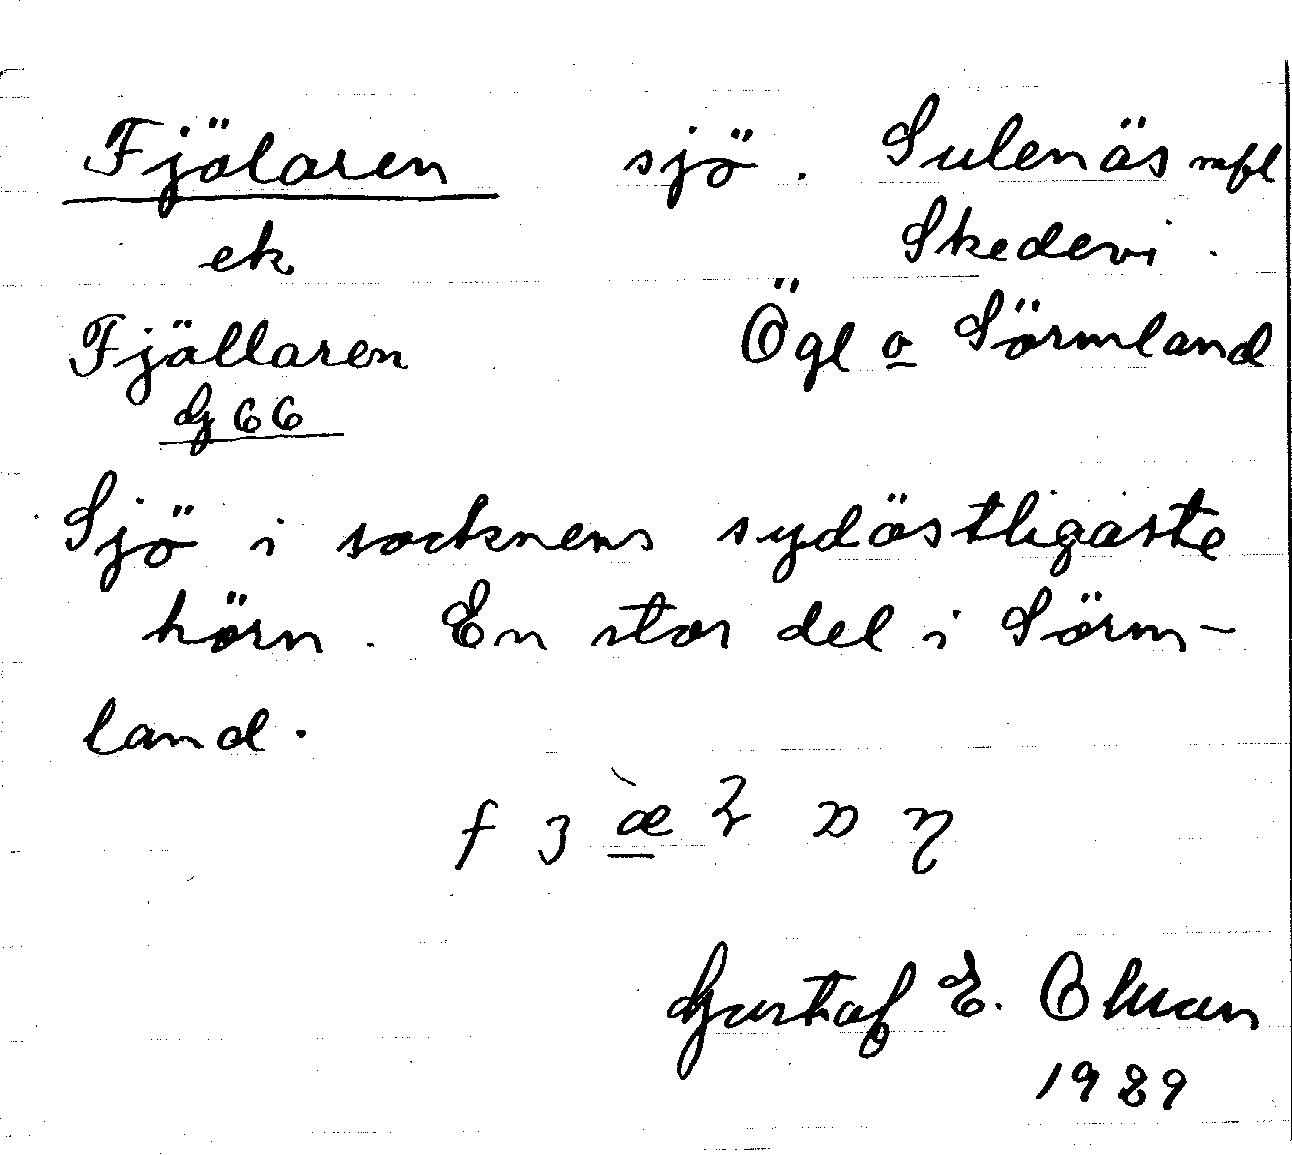 Fjölaren sjö. Sulenäs mfl
ek Skedevi.
Fjällaren Ögl o Sörmland
G 66
Sjö i socknens sydöstligaste
hörn. En stor del i Sörm-
land.
Gustaf E. Ohman
1989